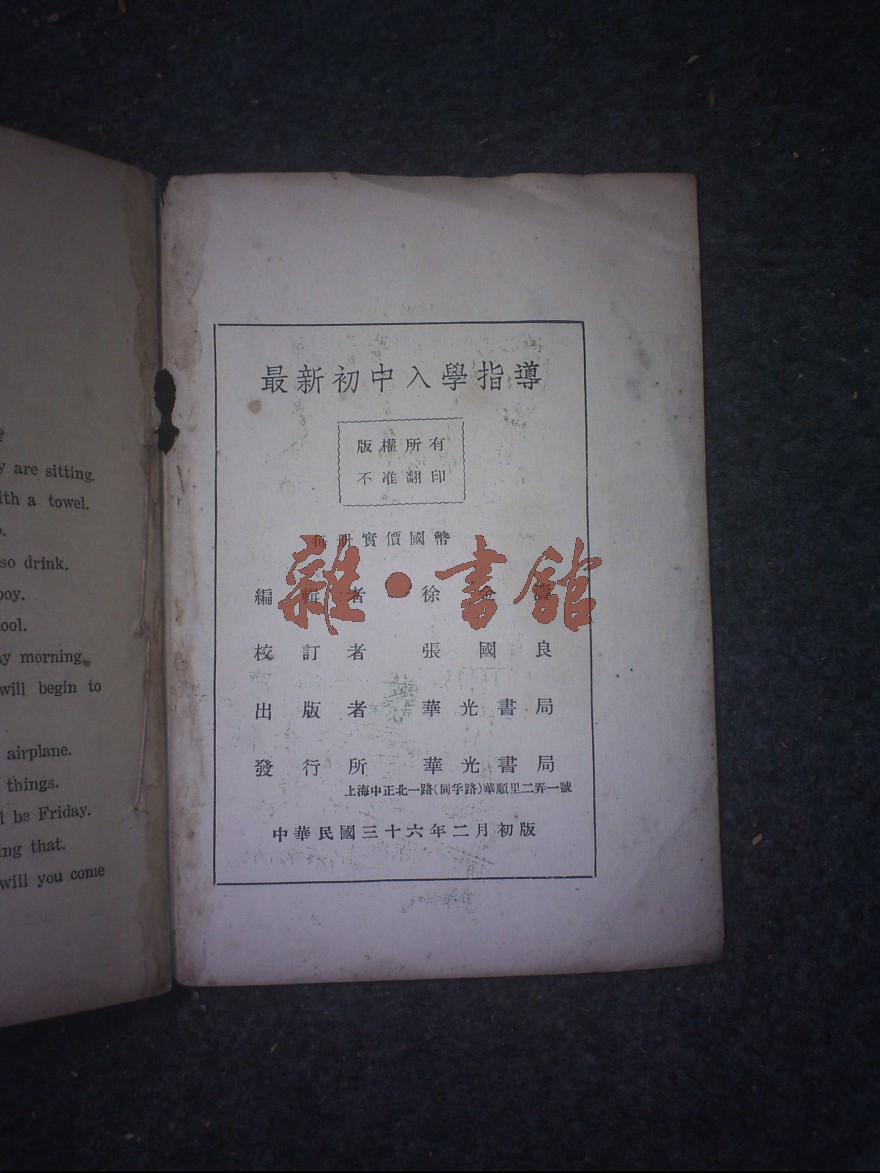 ?
y are sitting.
ith a towel.
so drink.
boy.
ool.
ay morning.
will begin to
airplane.
things.
l be Friday.
ing that.
will you come
最新初中入學指導
版權所有
不准翻印
每册實價國幣
雜·書館
編輯者 徐金
校訂者 張國良
出版者 華光書局
發行所 華光書局
上海中正北一路(同孚路)華順里二弄一號
中華民國三十六年二月初版